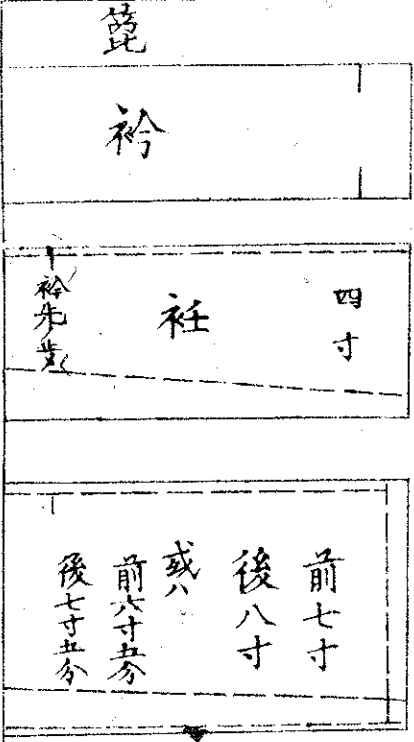 箆
衿
四寸
衽
衿先
前七寸
後八寸
或ハ
前六寸五分
後七寸五分